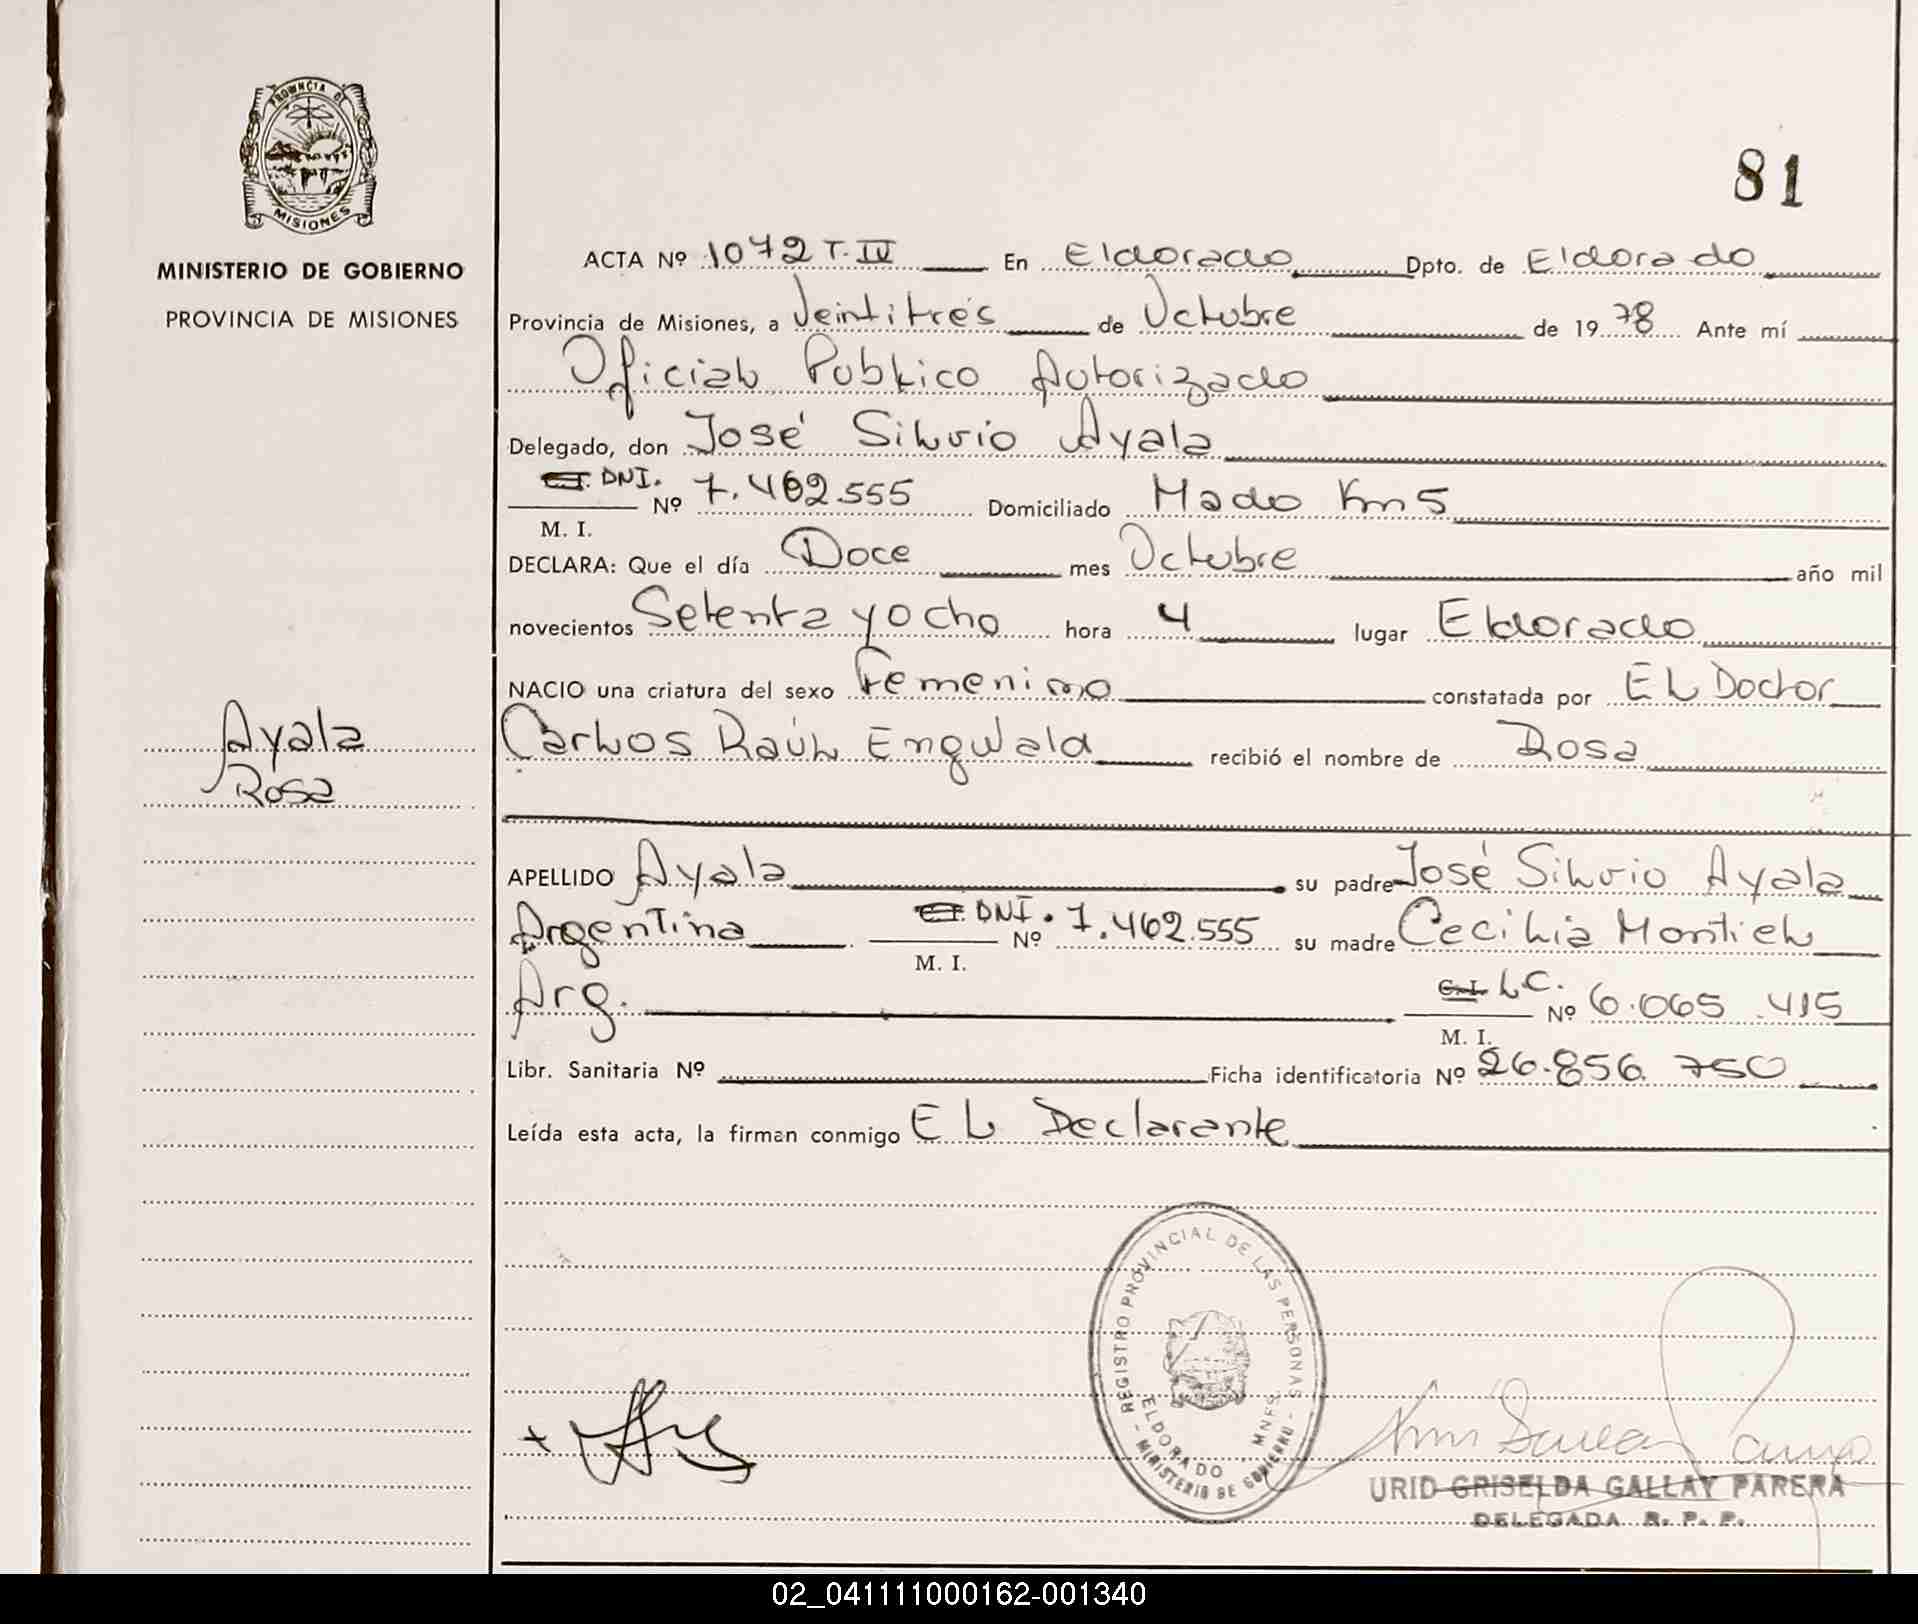 PROVINCIA DE
MISIONES
MINISTERIO DE GOBIERNO
PROVINCIA DE MISIONES
81
ACTA Nº 1072 T. IV En Eldorado Dpto. de Eldorado
Provincia de Misiones, a Veintitrés de Octubre de 1978 Ante mí
Oficial Publico Autorizado
Delegado, don José Silvio Ayala
C.I. DNI. Nº 7.462.555 Domiciliado Mado Km 5
M. I.
DECLARA: Que el día Doce mes Octubre año mil
novecientos Setenta y ocho hora 4 lugar Eldorado
NACIO una criatura del sexo Femenino constatada por El Doctor
Ayala
Carlos Raúl Engwald recibió el nombre de Rosa
Rosa
APELLIDO Ayala su padre José Silvio Ayala
Argentina C.I. DNI. Nº 7.462.555 su madre Cecilia Montiel
M. I.
Arg. C.I. L C. Nº 6.065.415
M. I.
Libr. Sanitaria Nº Ficha identificatoria Nº 26.856.750
Leída esta acta, la firman conmigo El Declarante
REGISTRO PROVINCIAL DE LAS PERSONAS
ELDORADO MNES.
- MINISTERIO DE GOBIERNO -
URID GRISELDA GALLAY PARERA
DELEGADA R. P. P.
02_041111000162-001340